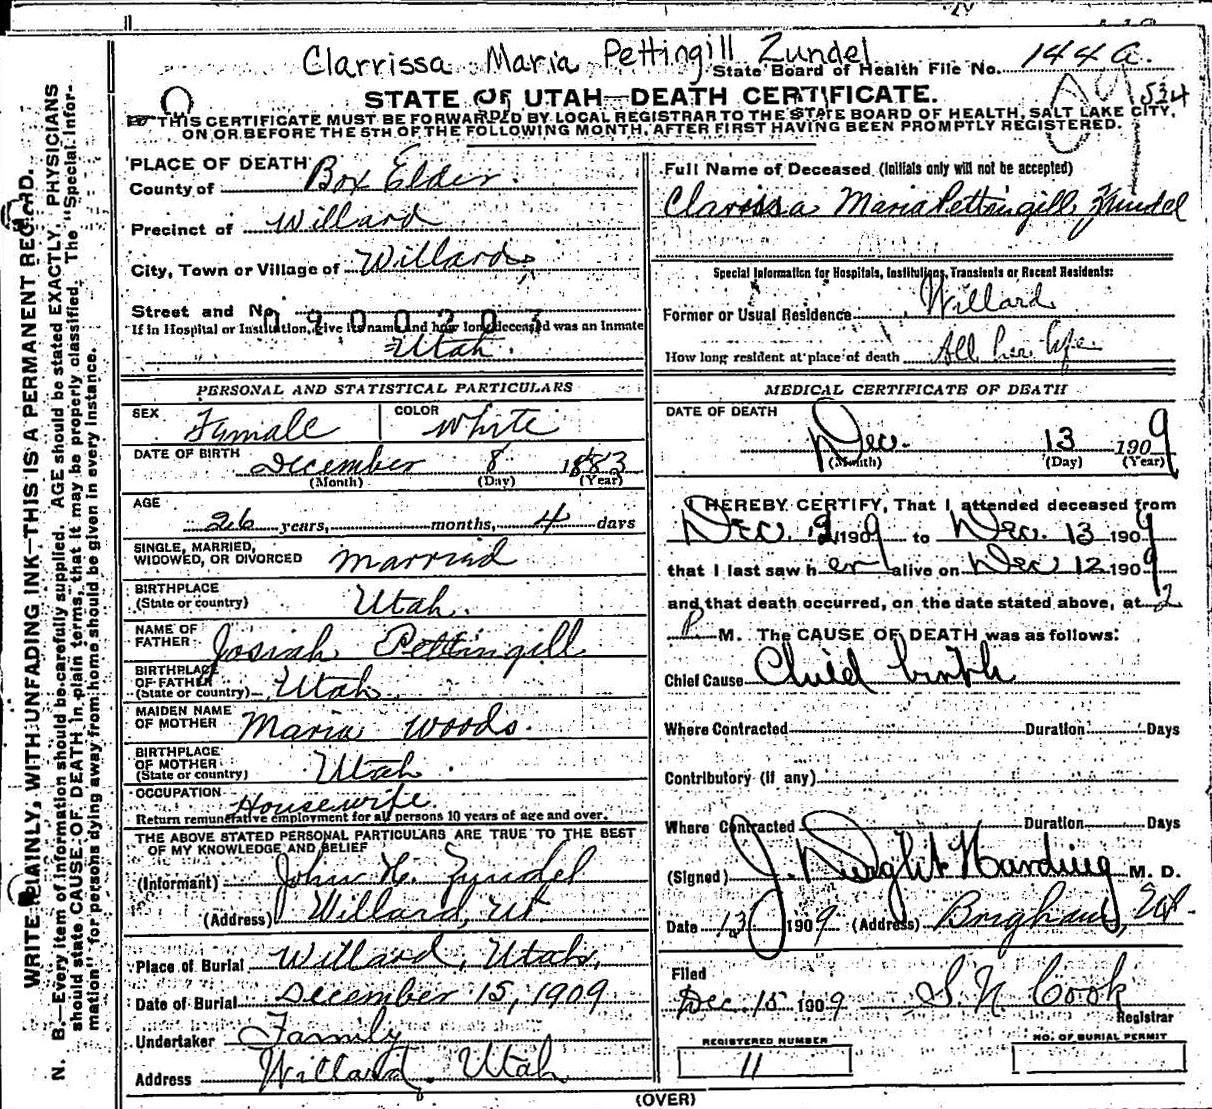 Clarrissa Maria Pettingill Zundel
State Board of Health File No. 144 a.
534
STATE OF UTAH—DEATH CERTIFICATE.
THIS CERTIFICATE MUST BE FORWARDED BY LOCAL REGISTRAR TO THE STATE BOARD OF HEALTH, SALT LAKE CITY,
ON OR BEFORE THE 5TH OF THE FOLLOWING MONTH, AFTER FIRST HAVING BEEN PROMPTLY REGISTERED.
WRITE PLAINLY, WITH UNFADING INK—THIS IS A PERMANENT RECORD.
N. B.—Every item of information should be carefully supplied. AGE should be stated EXACTLY. PHYSICIANS
should state CAUSE OF DEATH in plain terms, that it may be properly classified. The "Special Infor-
mation" for persons dying away from home should be given in every instance.
PLACE OF DEATH
County of Box Elder.
Precinct of Willard
City, Town or Village of Willard
Street and No.
1900203
If in Hospital or Institution, give its name and how long deceased was an inmate
Utah.
PERSONAL AND STATISTICAL PARTICULARS
SEX Female COLOR White
DATE OF BIRTH December 8 1883
(Month) (Day) (Year)
AGE
26 years, months, 4 days
SINGLE, MARRIED,
WIDOWED, OR DIVORCED Married
BIRTHPLACE
(State or country) Utah.
NAME OF
FATHER Josiah Pettingill
BIRTHPLACE
OF FATHER
(State or country) Utah
MAIDEN NAME
OF MOTHER Maria Woods.
BIRTHPLACE
OF MOTHER
(State or country) Utah.
OCCUPATION Housewife.
Return remunerative employment for all persons 10 years of age and over.
THE ABOVE STATED PERSONAL PARTICULARS ARE TRUE TO THE BEST
OF MY KNOWLEDGE AND BELIEF
(Informant) John Zundel
(Address) Willard, Ut.
Place of Burial Willard, Utah,
Date of Burial December 15, 1909
Undertaker Family
Address Willard. Utah
Full Name of Deceased (Initials only will not be accepted)
Clarissa Maria Pettingill Zundel
Special Information for Hospitals, Institutions, Transients or Recent Residents:
Former or Usual Residence Willard
How long resident at place of death All her life
MEDICAL CERTIFICATE OF DEATH
DATE OF DEATH
Dec. 13 1909
(Month) (Day) (Year)
I HEREBY CERTIFY, That I attended deceased from
Dec. 1909 to Dec. 13 1909
that I last saw her alive on Dec 12 1909
and that death occurred, on the date stated above, at 2
P M. The CAUSE OF DEATH was as follows:
Chief Cause Child birth
Where Contracted Duration Days
Contributory (if any)
Where Contracted Duration Days
(Signed) J. Dwight Harding M. D.
Date 1909 (Address) Brigham, Ut.
Filed
Dec. 15 1909 S. N. Cook
Registrar
REGISTERED NUMBER
11
NO. OF BURIAL PERMIT
(OVER)